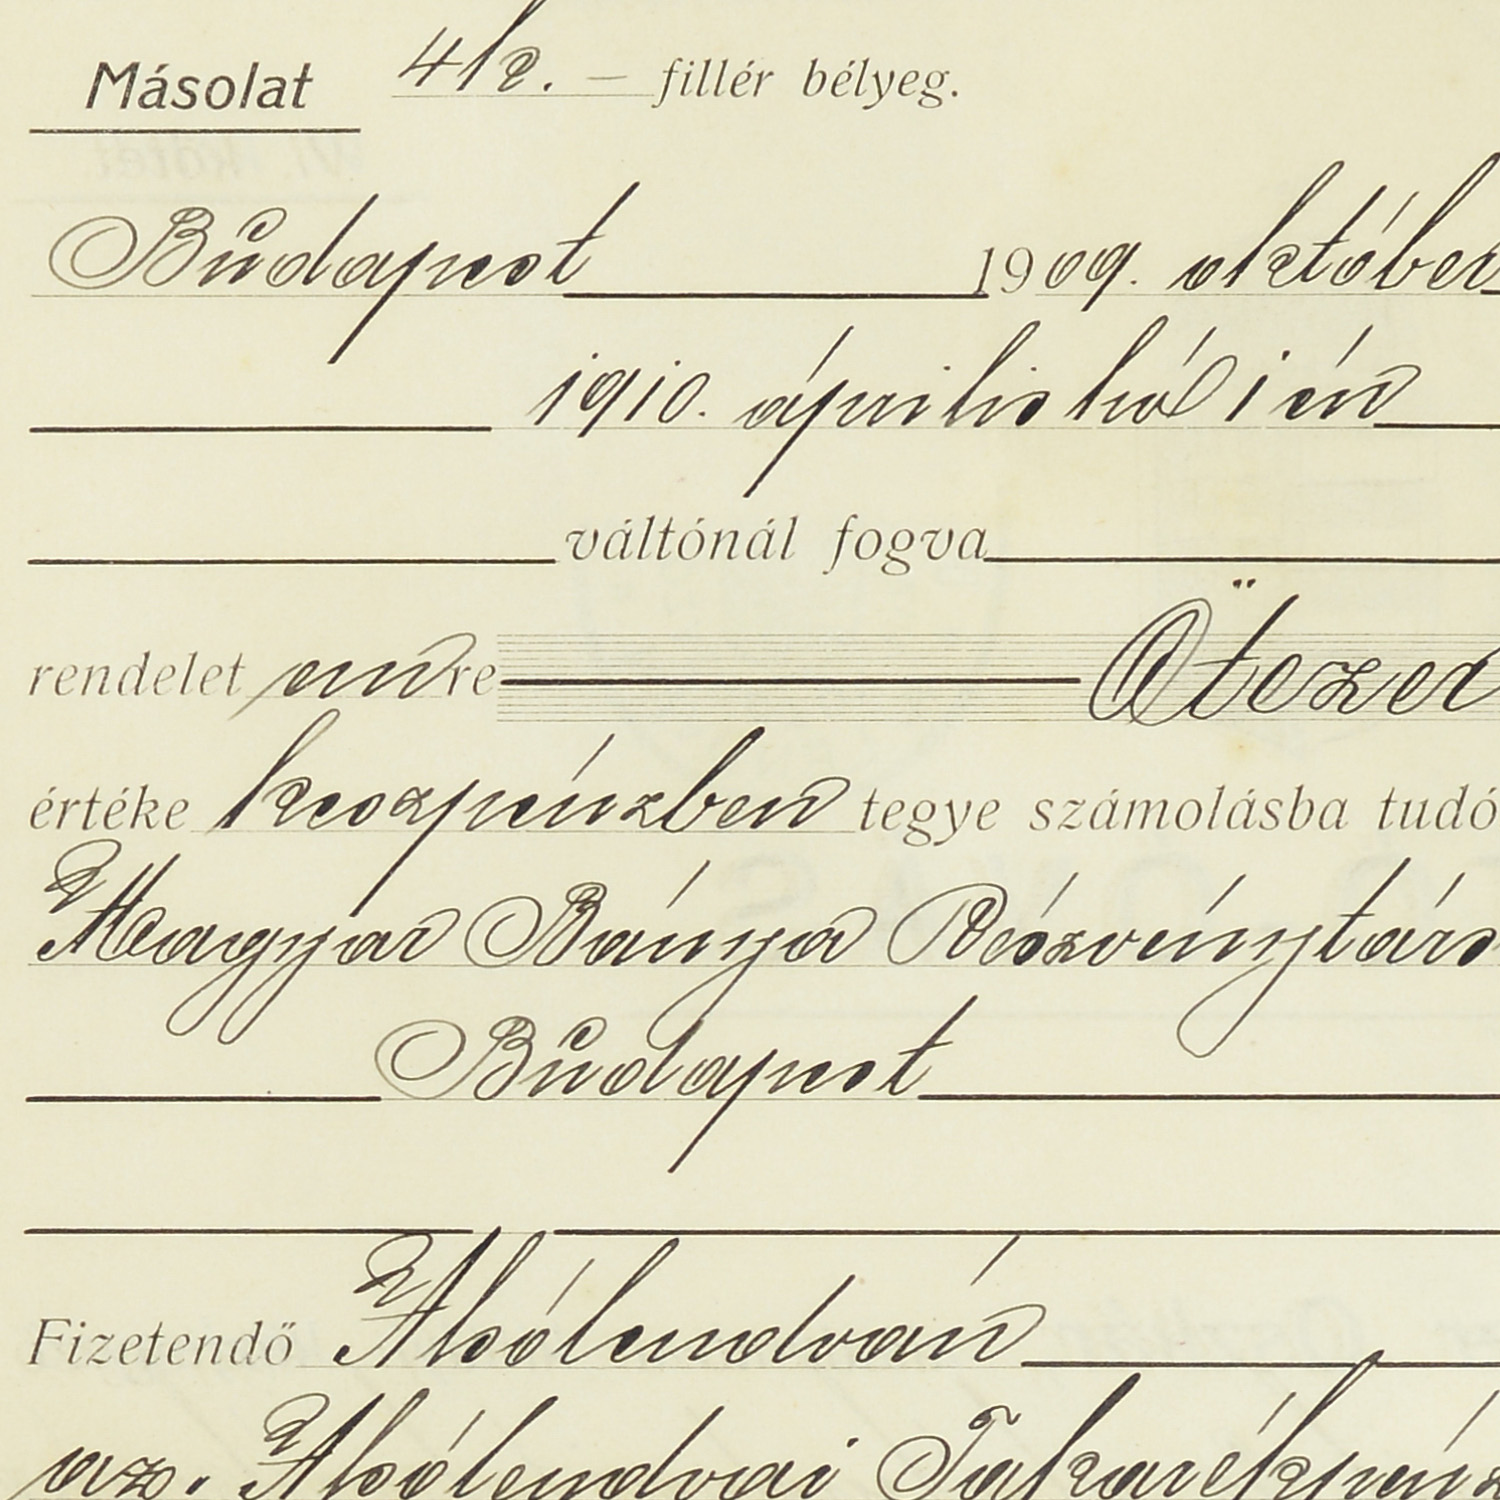 Másolat 4 K. — fillér bélyeg.
Budapest 1909. október
1910. április hó 1 én
váltónál fogva
rendelet en re Ötezer
értéke készpénzben tegye számolásba tudó
Magyar Bánya Részvénytárs
Budapest
Fizetendő Alsólendván
az. Alsólendvai Takarékpénz